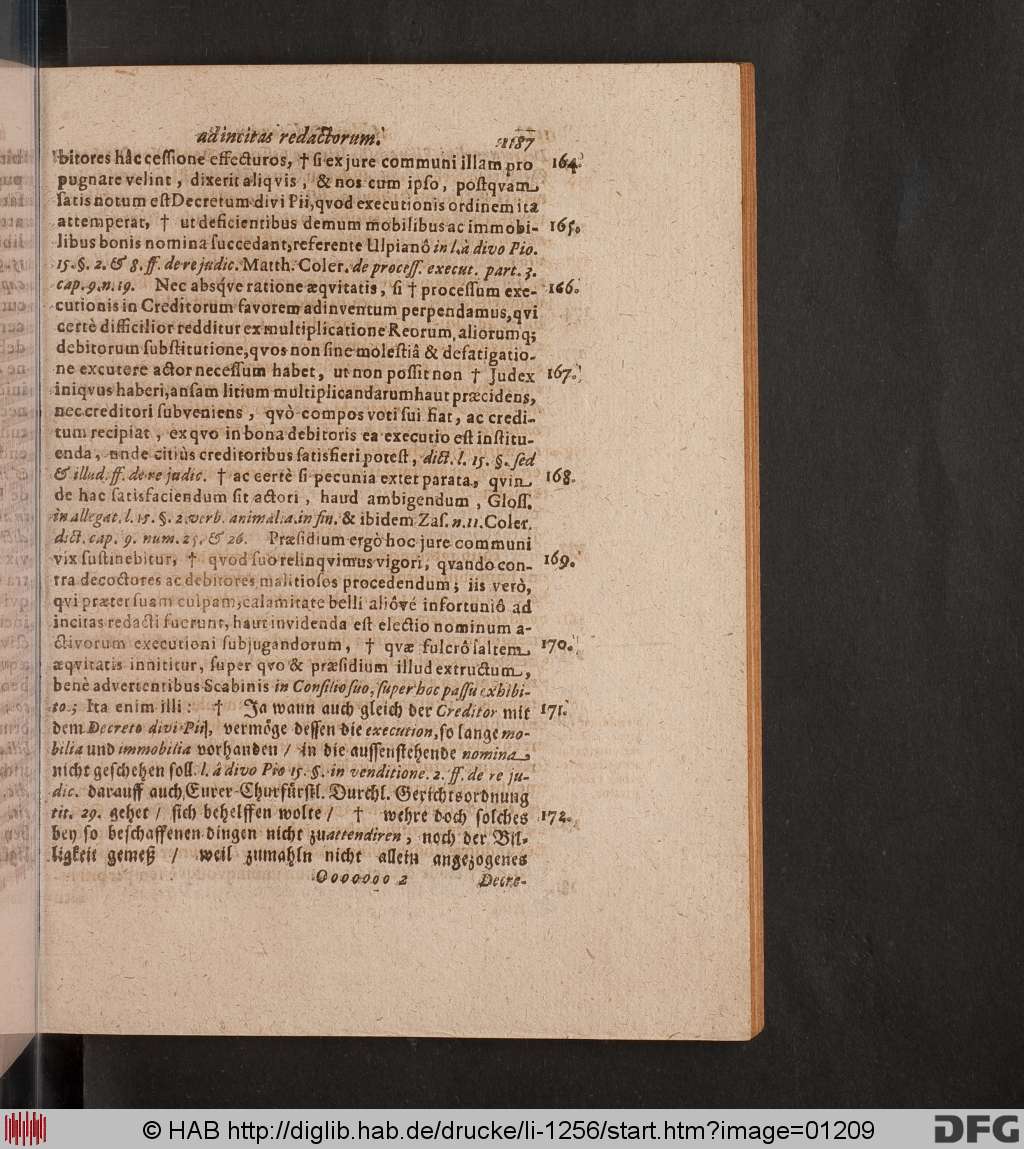 ad incitas redactorum. 1187
bitores hâc cessione effecturos, † si ex jure communi illam pro 164.
pugnare velint, dixerit aliqvis, & nos cum ipso, postqvam
satis notum est Decretum divi Pii, qvod executionis ordinem ita
attemperat, † ut deficientibus demum mobilibus ac immobi- 165.
libus bonis nomina succedant, referente Ulpianô in l. à divo Pio.
15. §. 2. & 8. ff. de re judic. Matth. Coler. de process. execut. part. 3.
cap. 9. n. 19. Nec absqve ratione æqvitatis, si † processum exe- 166.
cutionis in Creditorum favorem adinventum perpendamus, qvi
certè difficilior redditur ex multiplicatione Reorum, aliorumq;
debitorum substitutione, qvos non sine molestiâ & defatigatio-
ne excutere actor necessum habet, ut non possit non † Judex 167.
iniqvus haberi, ansam litium multiplicandarum haut præcidens,
nec creditori subveniens, qvò compos voti sui fiat, ac credi-
tum recipiat, ex qvo in bona debitoris ea executio est institu-
enda, unde citiùs creditoribus satisfieri potest, dict. l. 15. §. sed
& illud. ff. de re judic. † ac certè si pecunia extet parata, qvin 168.
de hac satisfaciendum sit actori, haud ambigendum, Gloss.
in allegat. l. 15. §. 2. verb. animalia. in fin. & ibidem Zas. n. 11. Coler.
dict. cap. 9. num. 25. & 26. Præsidium ergò hoc jure communi
vix sustinebitur, † qvod suo relinqvimus vigori, qvando con- 169.
tra decoctores ac debitores malitiosos procedendum; iis verò,
qvi præter suam culpam, calamitate belli aliôvé infortuniô ad
incitas redacti fuerunt, haut invidenda est electio nominum a-
ctivorum executioni subjugandorum, † qvæ fulcrô saltem 170.
æqvitatis innititur, super qvo & præsidium illud extructum,
benè advertentibus Scabinis in Consilio suo, super hoc passu exhibi-
to; Ita enim illi: † Ja wann auch gleich der Creditor mit 171.
dem Decreto divi Pii, vermöge dessen die execution, so lange mo-
bilia und immobilia vorhanden / in die aussenstehende nomina
nicht geschehen soll. l. à divo Pio 15. §. in venditione. 2. ff. de re ju-
dic. darauff auch Eurer Churfürstl. Durchl. Gerichtsordnung
tit. 29. gehet / sich behelffen wolte / † wehre doch solches 172.
bey so beschaffenen dingen nicht zu attendiren, noch der Bil-
ligkeit gemeß / weil zumahln nicht allein angezogenes
Ooooooo 2 Decre-
© HAB http://diglib.hab.de/drucke/li-1256/start.htm?image=01209
DFG